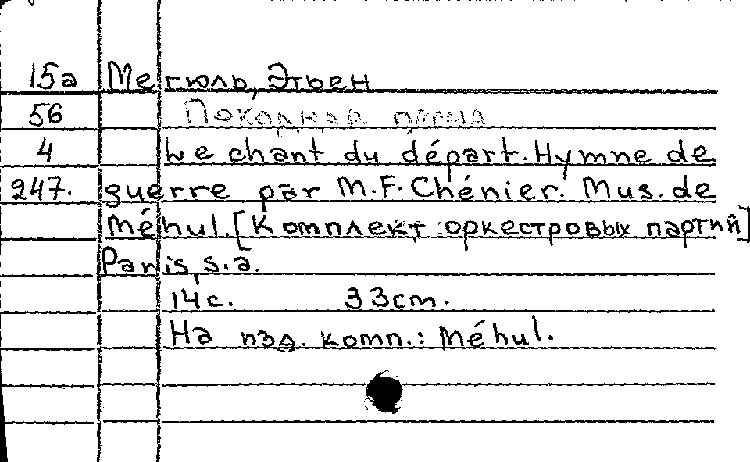 15а Мегюль, Этьен
56 Походная песня
4 Le chant du départ. Hymne de
247. guerre par M.F. Chénier. Mus. de
Méhul. [Комплект оркестровых партий]
Paris, s.a.
14 с. 33 cm.
На изд. комп.: Méhul.